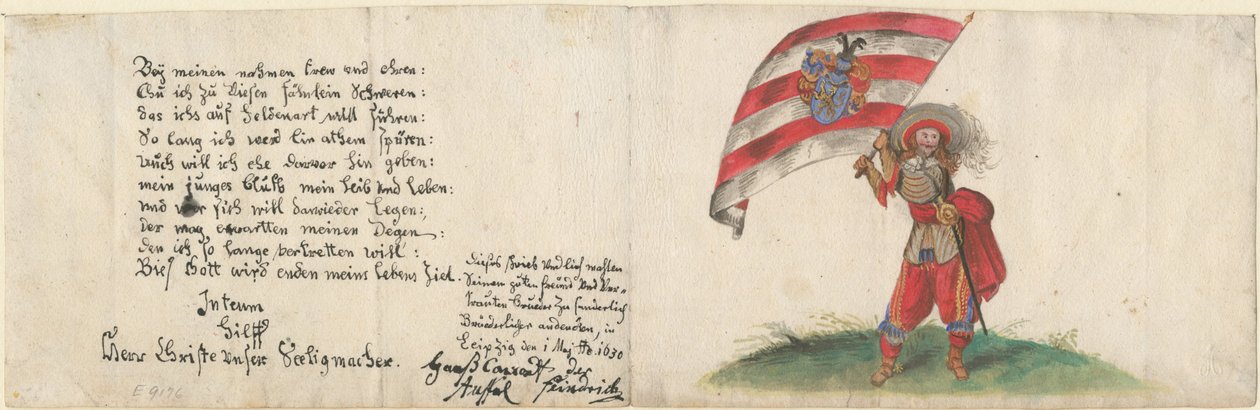 Bey meinen nahmen trew und ehren:
Thu ich zu diesen fähnlein Schweren:
das ichs auf heldenart will führen:
So lang ich werd ein athem spüren:
Auch will ich ehe darvor hin geben:
mein junges blutt mein leib und leben:
und wer sich will darwieder legen:
der mag erwartten meinen Degen:
den ich so lange vertretten will:
Bies Gott wird enden meins lebens Ziel.
Interim
Hilff
Herr Christe unser Seeligmacher.
dieses schrieb und lies mahlen
Seinem guten freund und ver-
trauten bruder zu sonderlich
Brüederlicher andencken, in
Leipzig den 1 Maj Ao. 1630
Hanß der
E 9176